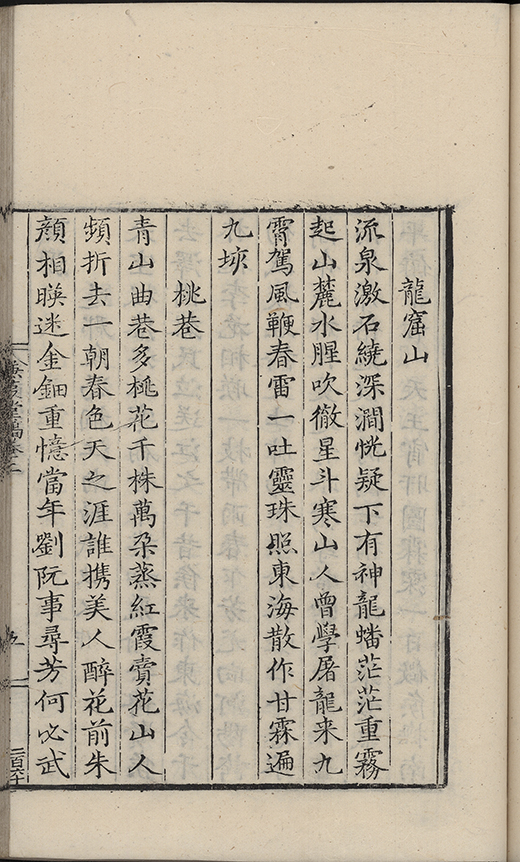 龍窟山
流泉激石繞深澗恍疑下有神龍蟠茫茫重霧
起山麓水腥吹徹星斗寒山人曾學屠龍來九
霄駕風鞭春雷一吐靈珠照東海散作甘霖遍
九垓
桃巷
青山曲巷多桃花千株萬朶蒸紅霞賣花山人
頻折去一朝春色天之涯誰携美人醉花前朱
顔相暎迷金鈿重憶當年劉阮事尋芳何必武